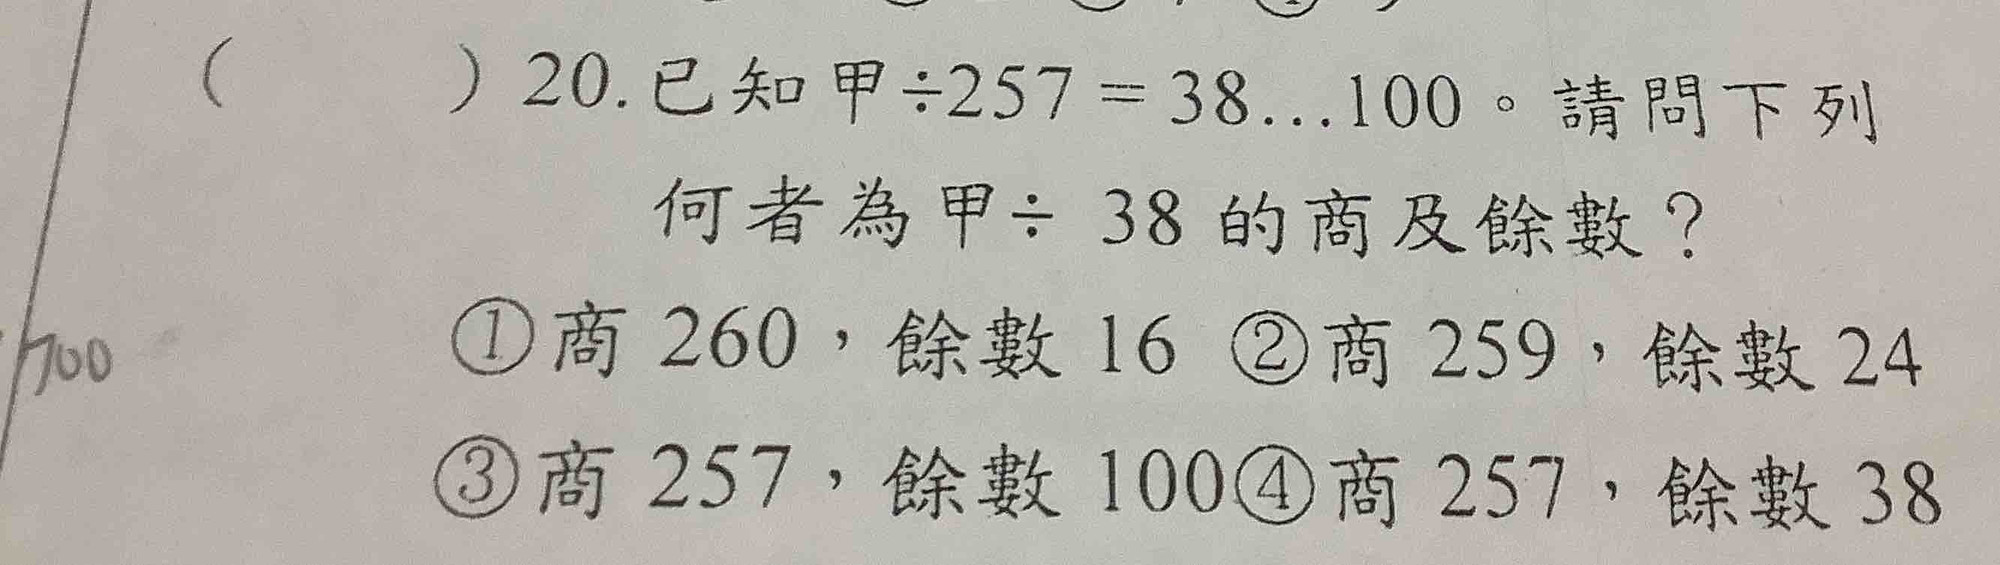 ( ) 20. 已知甲÷257 = 38...100。請問下列
何者為甲÷ 38 的商及餘數?
①商 260,餘數 16 ②商 259,餘數 24
700
③商 257,餘數 100④商 257,餘數 38